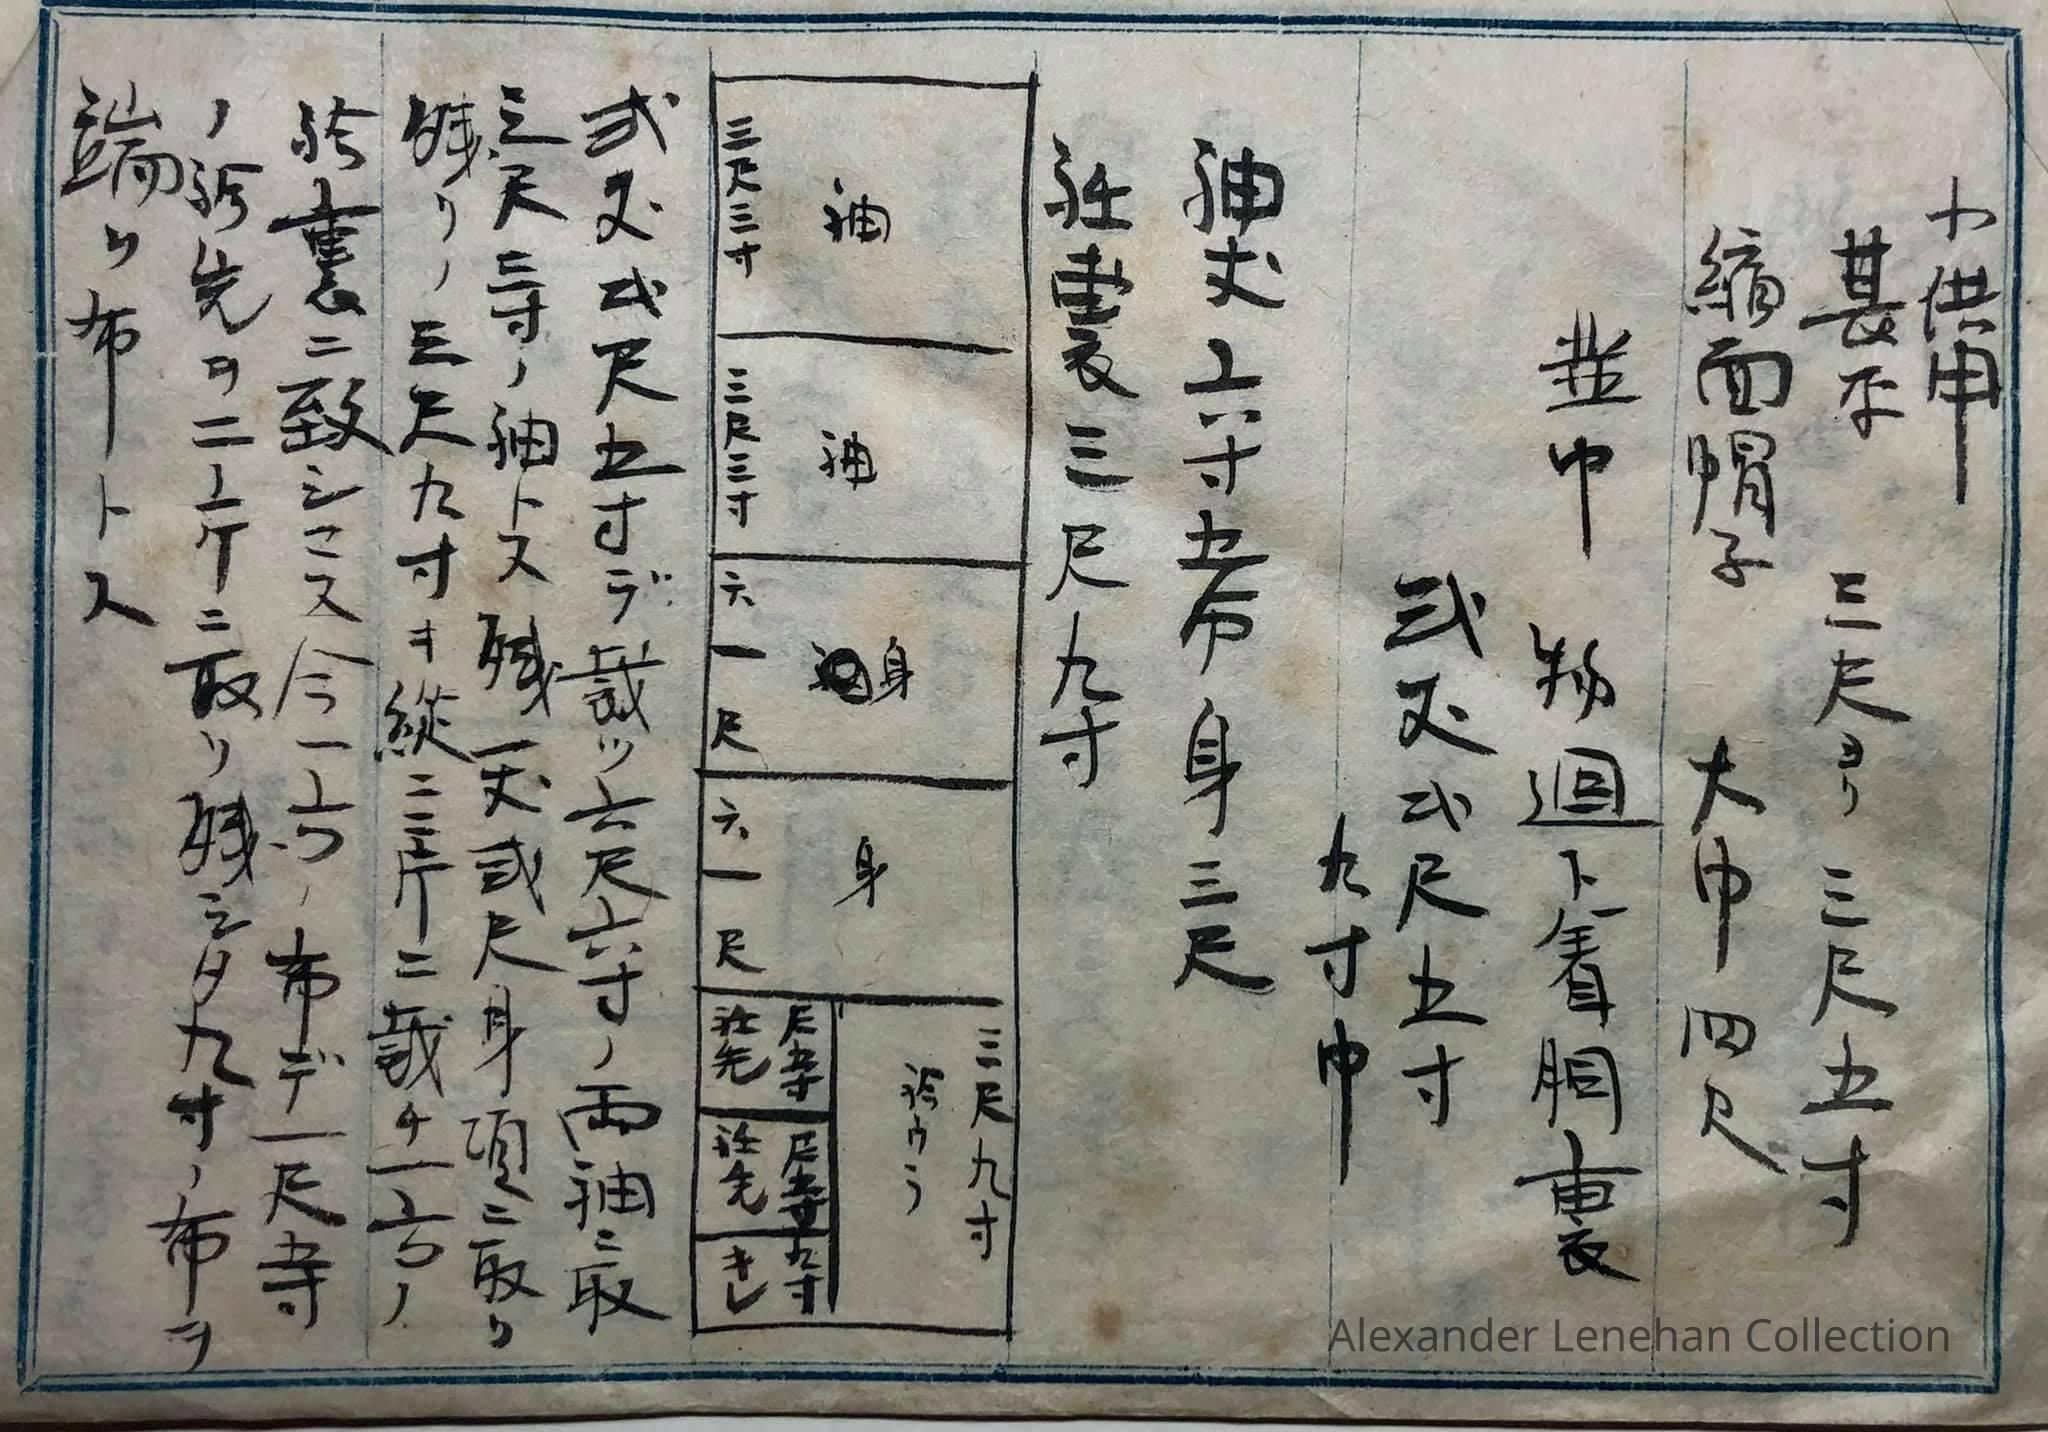 小供用
甚平 三尺ヨリ 三尺五寸
縮面帽子 大巾 四尺
並巾 物廻下着胴裏
弐丈弐尺五寸
九寸巾
袖丈一六寸五分 身三尺
裏三尺九寸
三尺三寸 袖
三尺三寸 袖
六一尺 身
六一尺 身
三尺九寸
袵ウラ
尺五寸
袵先
尺五寸
袵先
九寸
キレ
弐丈弐尺五寸デ裁ツ六尺六寸ノ両袖ニ取
三尺三寸ノ袖トス残一丈弐尺身頃ニ取リ
残リノ三尺九寸ヲ縦ニ二片ニ裁チ一方ノ
袵裏ニ致シマス今一方ノ布デ一尺五寸
ノ袵先ヲ二片ニ取リ残シタ九寸ノ布ヲ
端リ布トス
Alexander Lenehan Collection